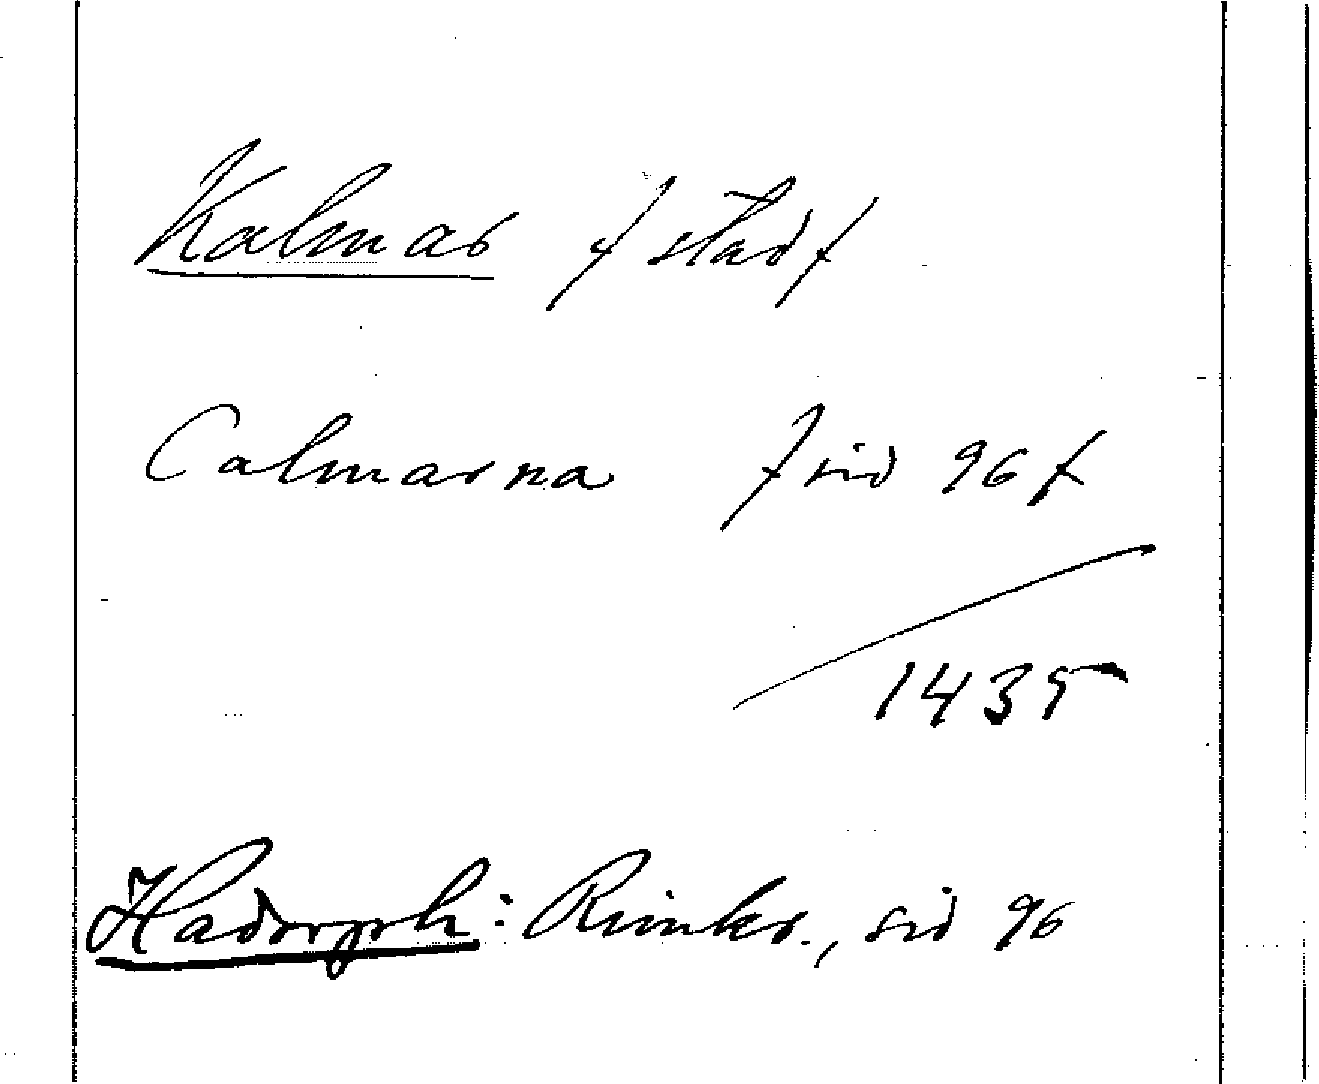 Kalmar /stad/
Calmarna /sid 96/
1435
Hadorph: Rimkr., sid 96